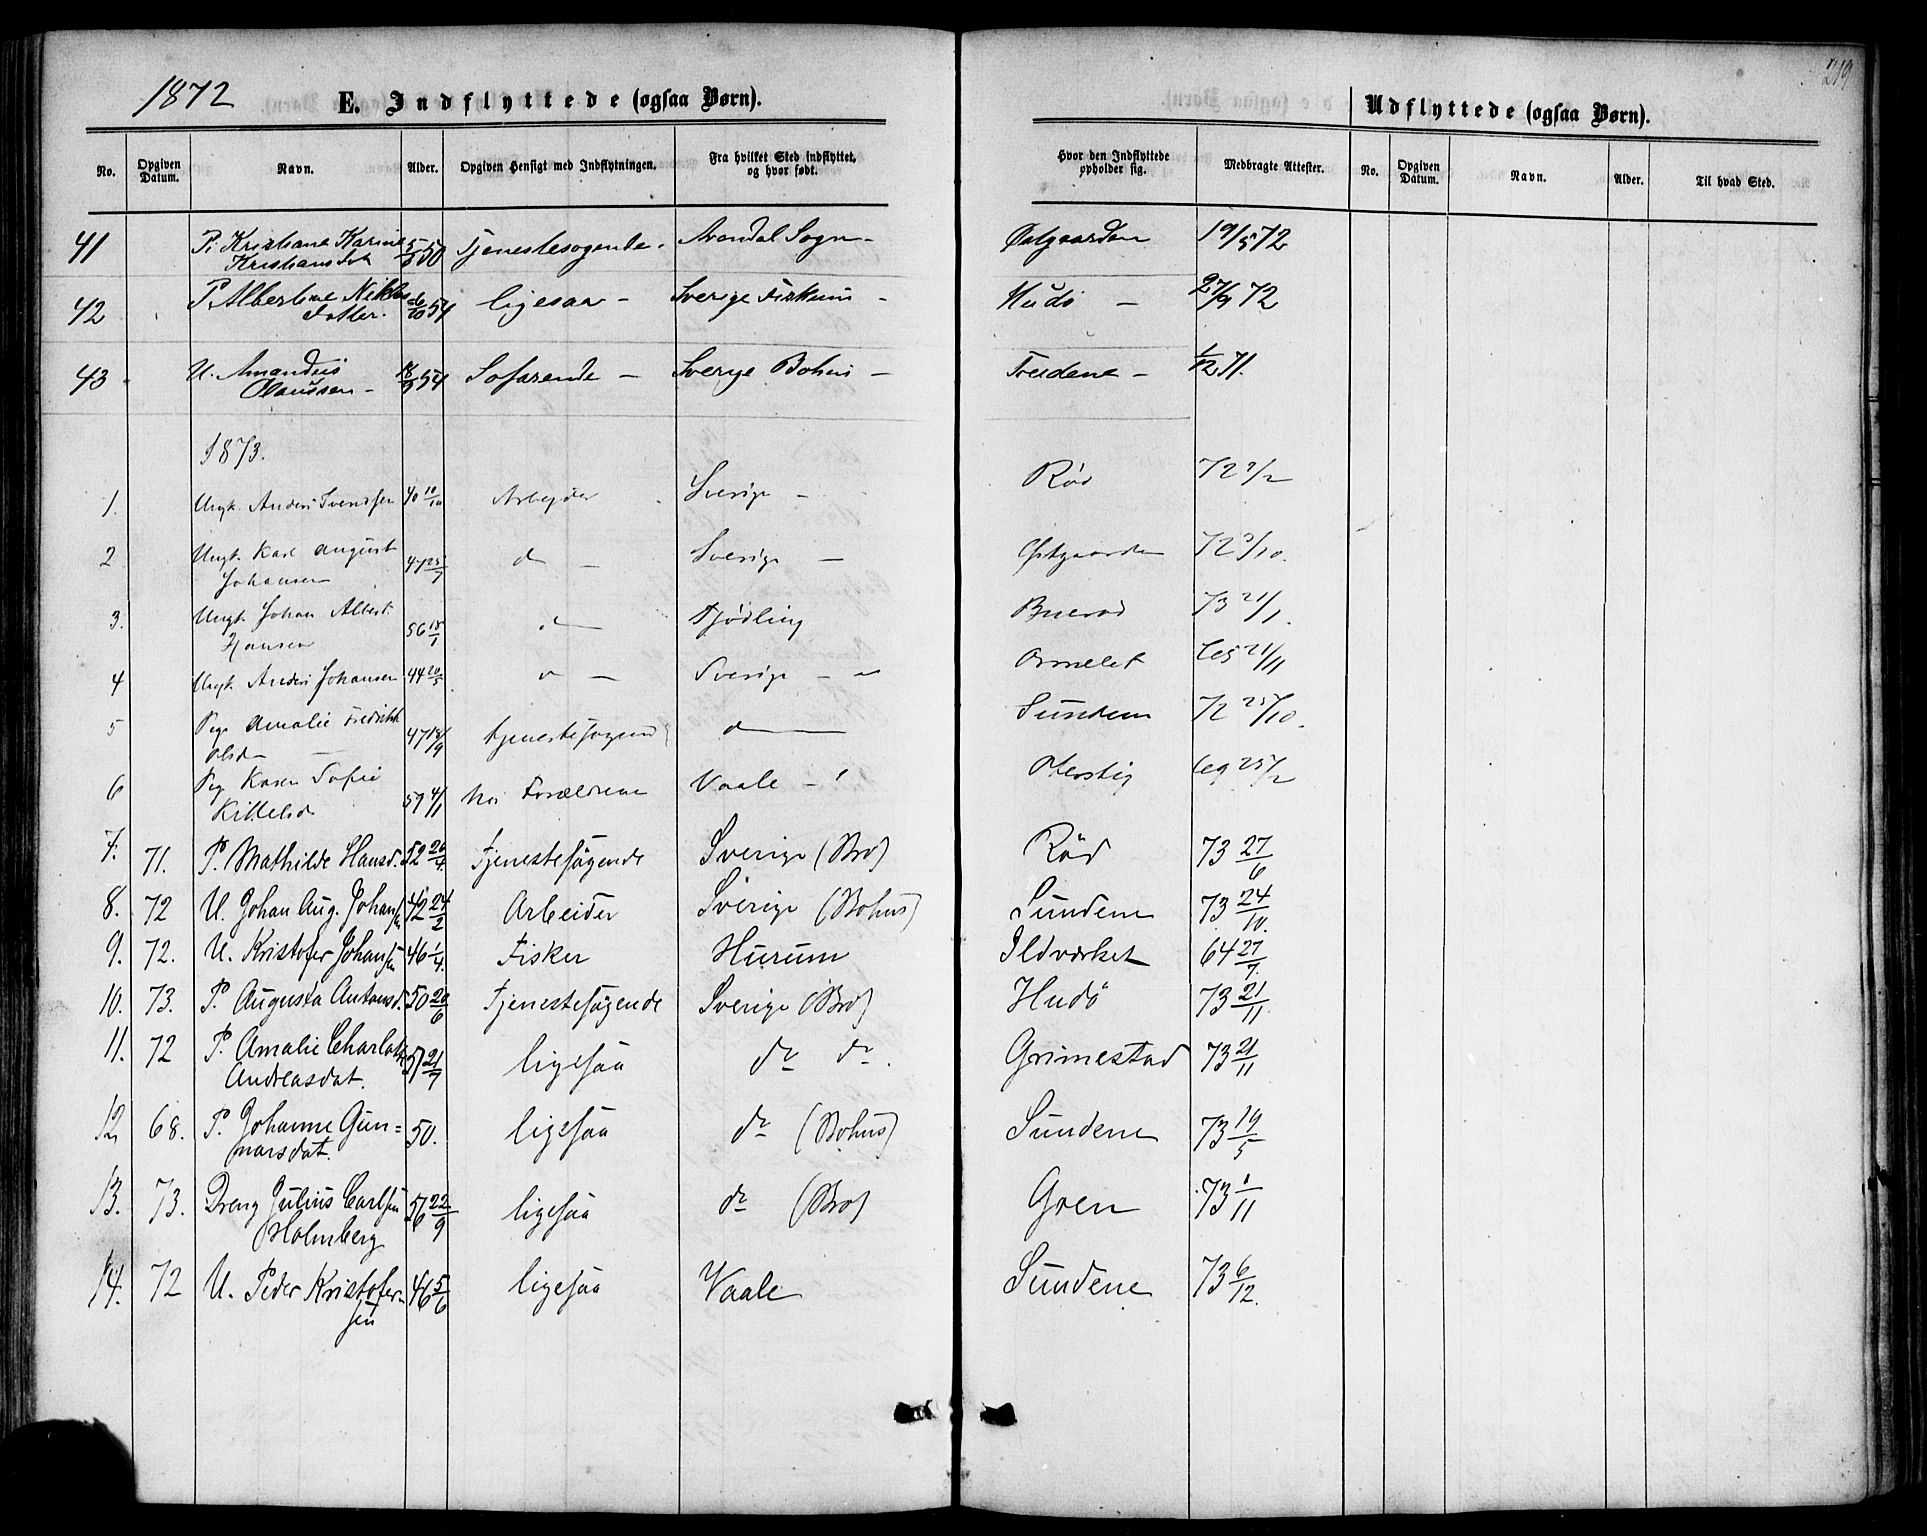 219
1872 E. Indflyttede (ogsaa Børn). Udflyttede (ogsaa Børn).
No. Opgiven Datum. Navn. Alder. Opgiven Hensigt med Indflytningen. Fra hvilket Sted indflyttet, og hvor født. Hvor den Indflyttede opholder sig. Medbragte Attester. No. Opgiven Datum. Navn. Alder. Til hvad Sted.
41 P. Kristiane Karine 50 Tjenestesøgende. Sogn - 19/5 72
Kristiansdat
42 P. Albertine 54 ligesaa - Sverige - Hudö - 27/9 72
Datter.
43 U. Amandus 54 Sofarende - Sverige Bohus - 1/12 71.
Olaussen -
1873.
1. Ungk. Anders Svendsen 40 10/10 Arbejder Sverige - Röd 72 2/2
2 Ungk. Karl August 47 25/7 d - Sverige - Östgaarden 72 3/10.
Johansen
3. Ungk. Johan Albert 56 18/1 d Tjødling 73 21/1.
Hansen
4 Ungk. Anders Johansen 44 20/5 Sverige - Ormelet 21/11
5 Pige Amalie Fredrikke 47 18/9 tjenestesøgend d Sunden 72 25/10.
Olsd -
6 Pige Karen Sofie 59 4/1 hos Forældrene Vaale - 25/2
Kittelsd
7. 71. P. Mathilde Hansd. 52 26/4. Tjenestesøgende Sverige (Bro) Röd 73 27/6
8. 72 U. Johan Aug. Johansen 42 24/2 Arbeider Sverige (Bohus) Sundene 73 24/10.
9. 72. U. Kristofer Johansen 46 1/4. Fisker Hurum Ildverket 64 27/7.
10. 73. P. Augusta Antonsd. 50 28/6 Tjenestesøgende Sverige (Bro) Hudö 73 21/11.
11. 72 P. Amalie Charlotte 51 21/7 ligesaa do do. Grimestad 73 21/11
Andreasdat.
12 68. P. Johanne Gun= 50. ligesaa do (Bohus) Sundene 73 19/5
narsdat.
13. 73. Dreng Julius Carlsen 56 22/9 ligesaa do (Bro) Gren 73 1/11
Holmberg
14. 72 U. Peder Kristofer- 46 5/6 ligesaa Vaale Sundene 73 6/12.
sen